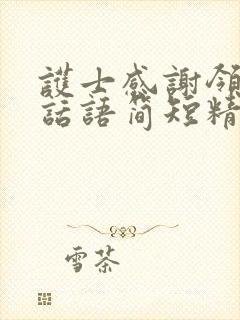 護士感謝領
話語简短精
雪茶